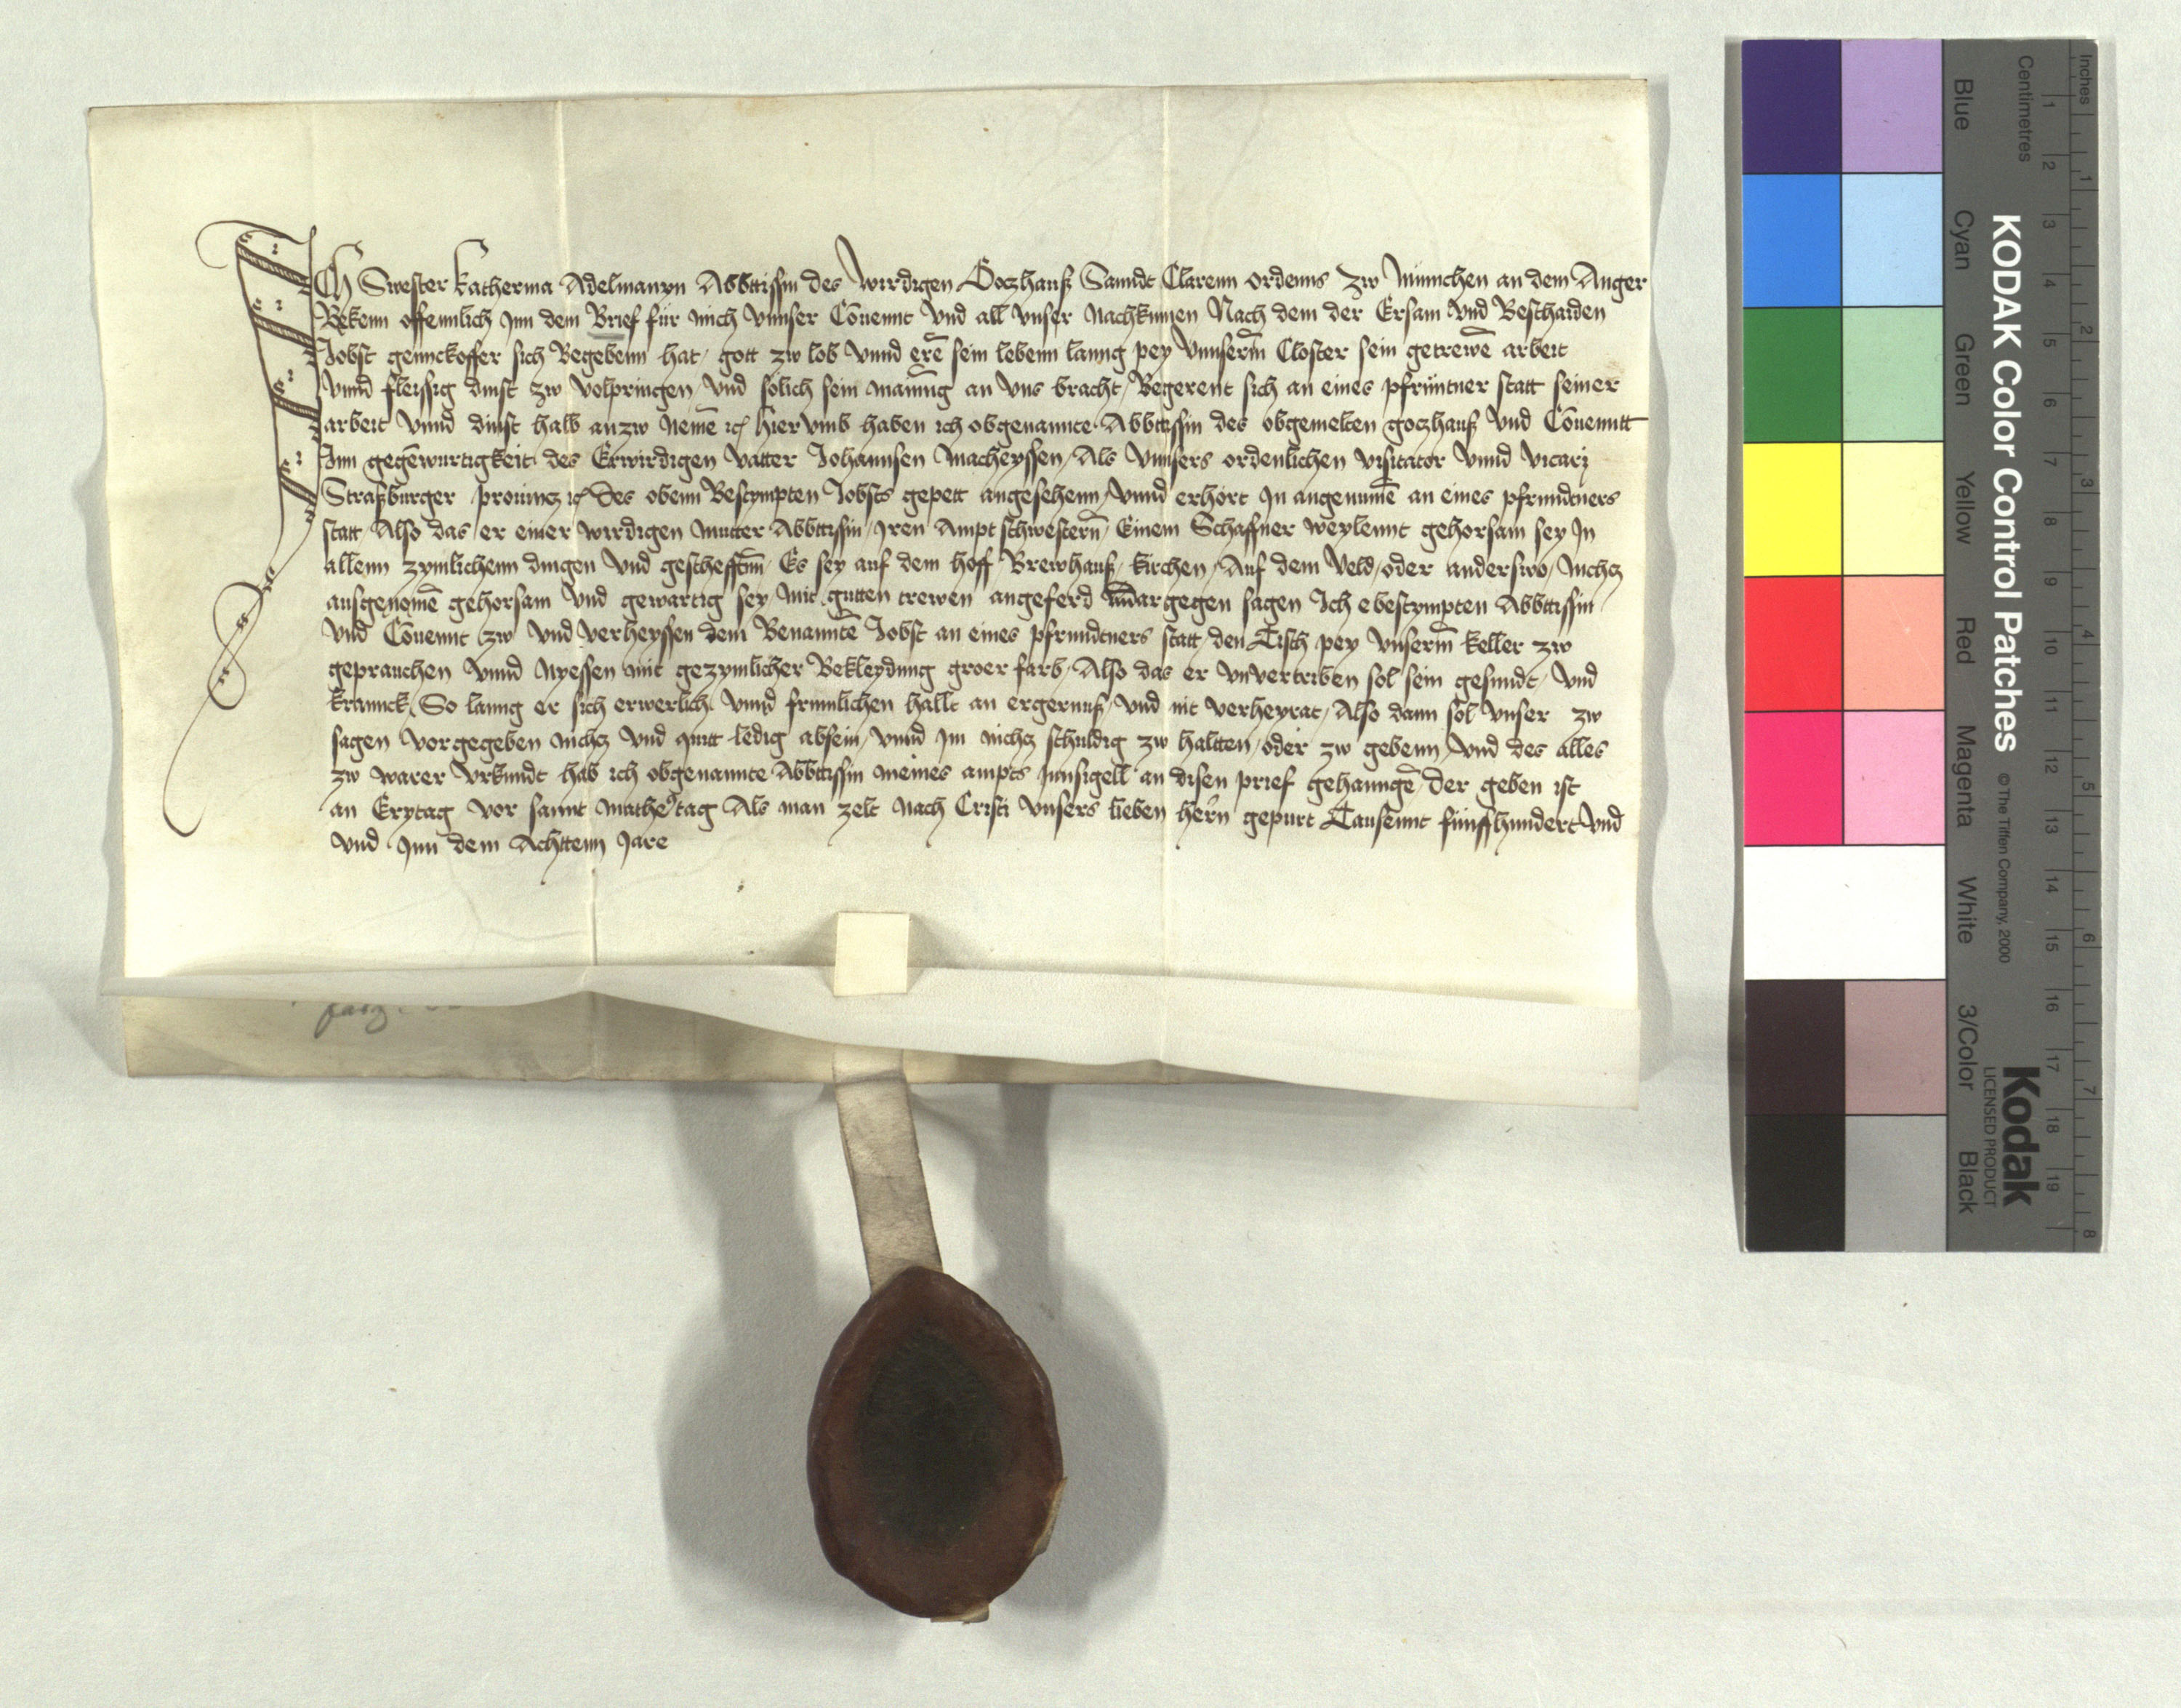 ICh Swester Katherina Adelmanyn Abbttissin des wirdigen Goczhauß Sanndt Clarenn ordenns zw Münnchen an dem Anger
Bekenn offennlich Jnn dem Brief für mich vnnser Couennt vnd all vnser Nachkumen Nach dem der Ersam vnd Beschaiden
Jobst gennckoffer sich Begebenn hat / gott zw lob vnnd erē sein lebenn lanng pey vnnserm̄ Closter sein getrewē arbeit
vnnd fleissig dinst zw volpringen / vnd sölich sein mainūng an vns bracht / Begerent sich an eines pfrüntner statt seiner
arbeit vnnd dinst halb anzw Nemē ꝛc hiervmb haben ich obgenannte Abbttissin des obgemelten goczhauß vnd Couenntt
Jnn gegēwurtigkeit des Erwirdigen vatter Johannsen Macheyssen / Als vnnsers ordenlichen visitator vnnd vicarj
Straßburger prouincz ꝛc des obenn Bestympten Jobsts gepett angesehenn / vnnd erhört Jn angenumē an eines pfrundtners
statt / Also das er einer wirdigen mutter Abbttissin / Jren Ampt schwestern̄ / Einem Schaffner weylennt gehorsam sey Jn
allenn zymlichenn dingen vnd gescheffttn̄ / Es sey auf dem hoff / Brewhauß / kirchen / Auf dem Veld / oder anderswo / Nichcz
ausgenomē gehorsam vnd gewartig sey / mit gutten trewen angeferd dargegen sagen Jch ebestympten Abbttissin
vnd Couennt zw vnd verheyssen dem Benanntē Jobst an eines pfrundtners statt / den Tisch pey vnserm̄ keller zw
geprauchen vnnd Nyessen mit gezymlicher Bekleydung groer farb / Also das er vnvertriben sol sein gesundt / vnd
krannck / So lanng er sich erwerlich vnnd frumlichen hallt an ergernuß / vnd nit verheyrat / Also dann sol vnser zw
sagen vorgegeben nichcz vnd quitt ledig absein / vnnd Jm nichcz schuldig zw haltten / oder zw gebenn / vnd des alles
zw warer vrkundt hab ich obgenannte Abbttissin meines ampts Jnnsigell an disen prief gehanngē / der geben ist
an Erytag vor sannt Mathe⁹tag Als man zelt Nach Cristi vnsers lieben hern̄ gepurt Tausennt fünffhundert vnd
vnd Jnn dem Achttenn Jare
KODAK Color Control Patches
© The Tiffen Company, 2000
Kodak
LICENSED PRODUCT
Inches 1 2 3 4 5 6 7 8
Centimetres 1 2 3 4 5 6 7 8 9 10 11 12 13 14 15 16 17 18 19
Blue Cyan Green Yellow Red Magenta White 3/Color Black